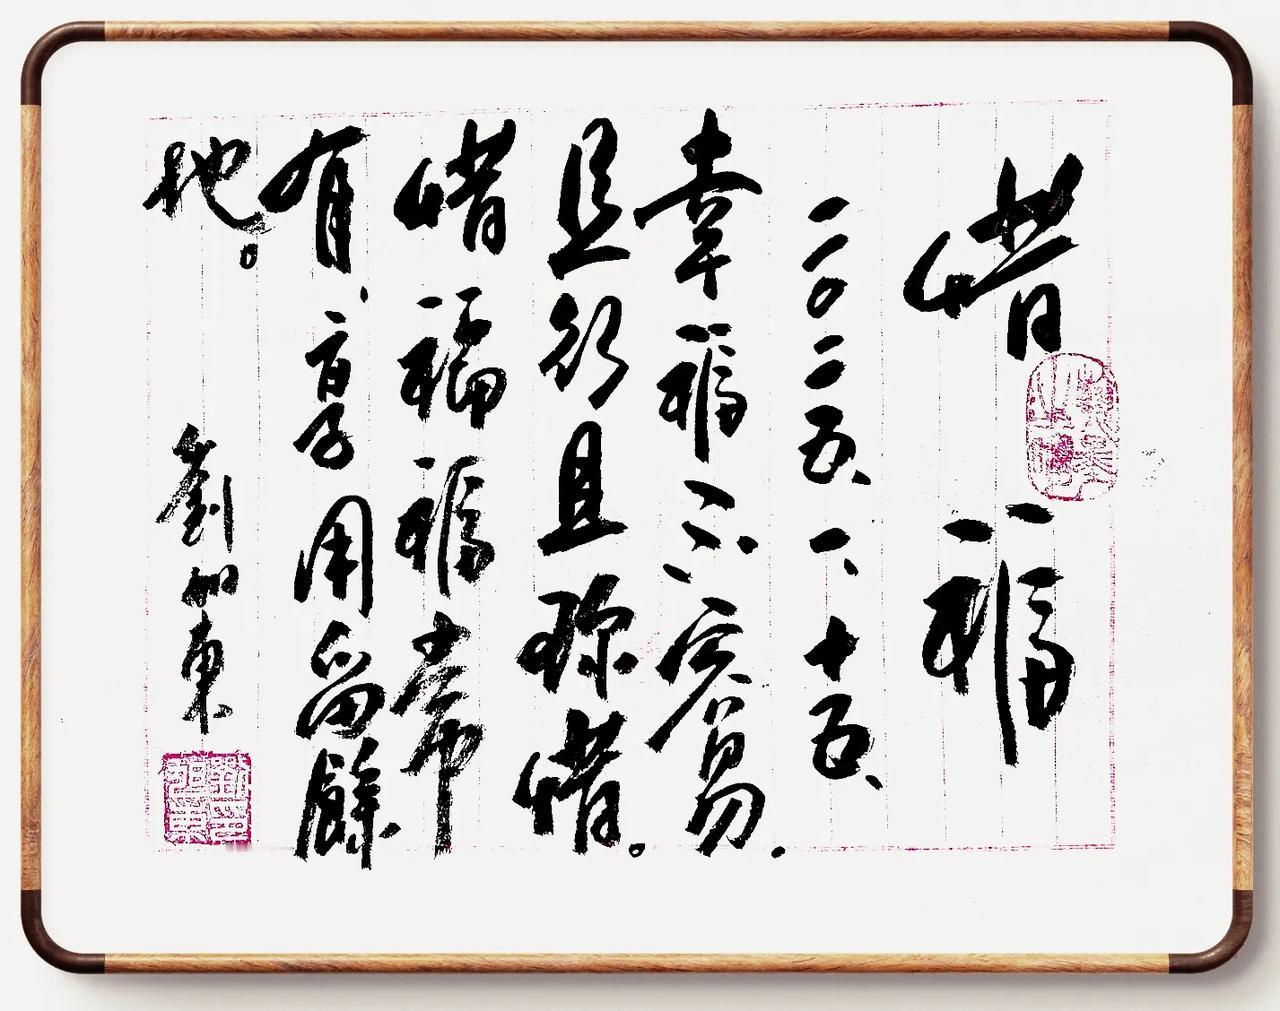 惜福
二〇二五、一、十五、
幸福不容易.
且行且珍惜。
惜福福常
有、享用留餘
地。
劉加東